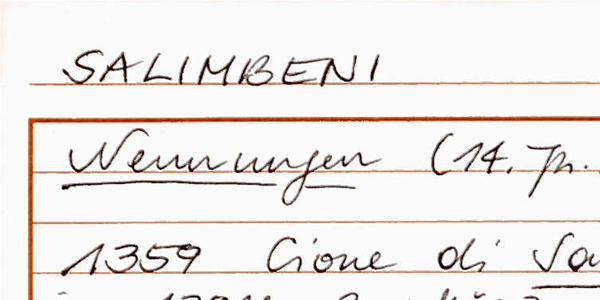 SALIMBENI
Nennungen (14. Jh.
1359 Cione di